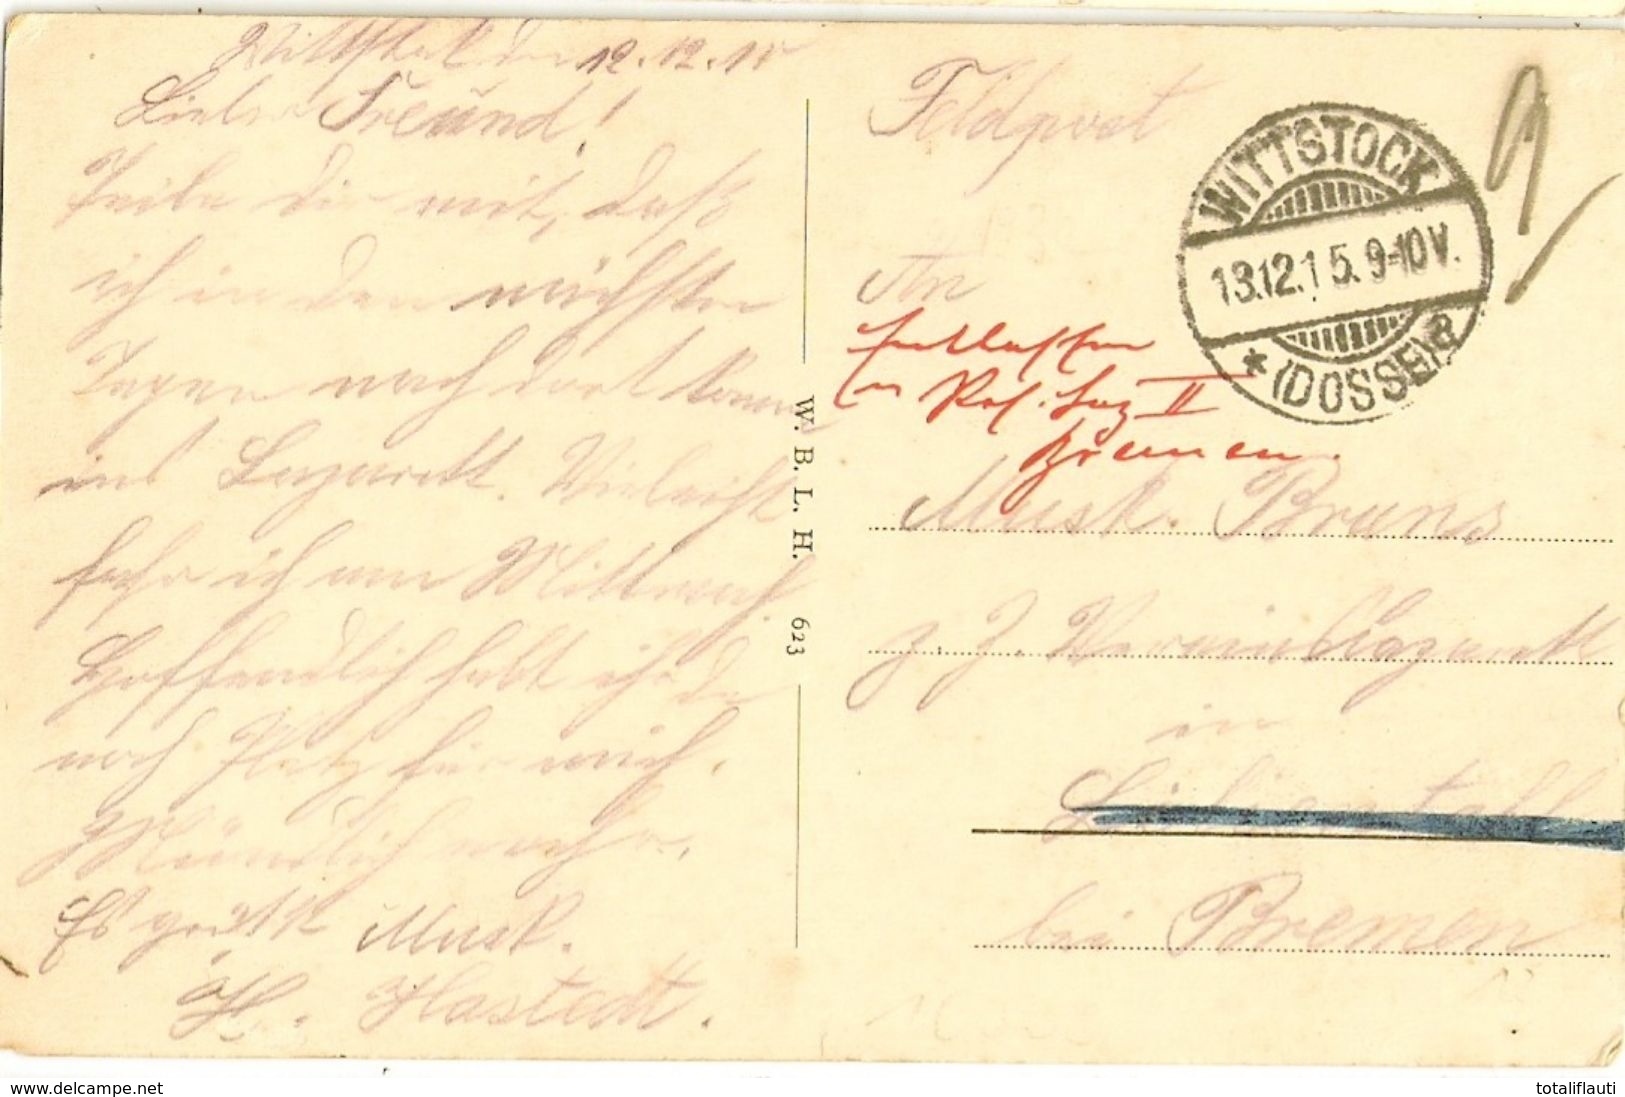 Wittstock den 12.12.15
Lieber Freund!
Teile dir mit, daß
ich in den nächsten
Tagen nach dort komme
ins Lazarett. Vieleicht
fahr ich am Mittwoch.
Hoffendlich habt ihr da
noch Platz für mich.
Mündlich mehr.
Es grüßt Musk.
H. Hastedt.
W. B. L. H. 623
Feldpost
WITTSTOCK
13.12.15. 9-10V.
* (DOSSE) a
An
Entlassen
Res. Laz II
Bremen.
Musk. Bruns
z. Z. Vereinslazarett
in
bei Bremen
www.delcampe.net
totaliflauti